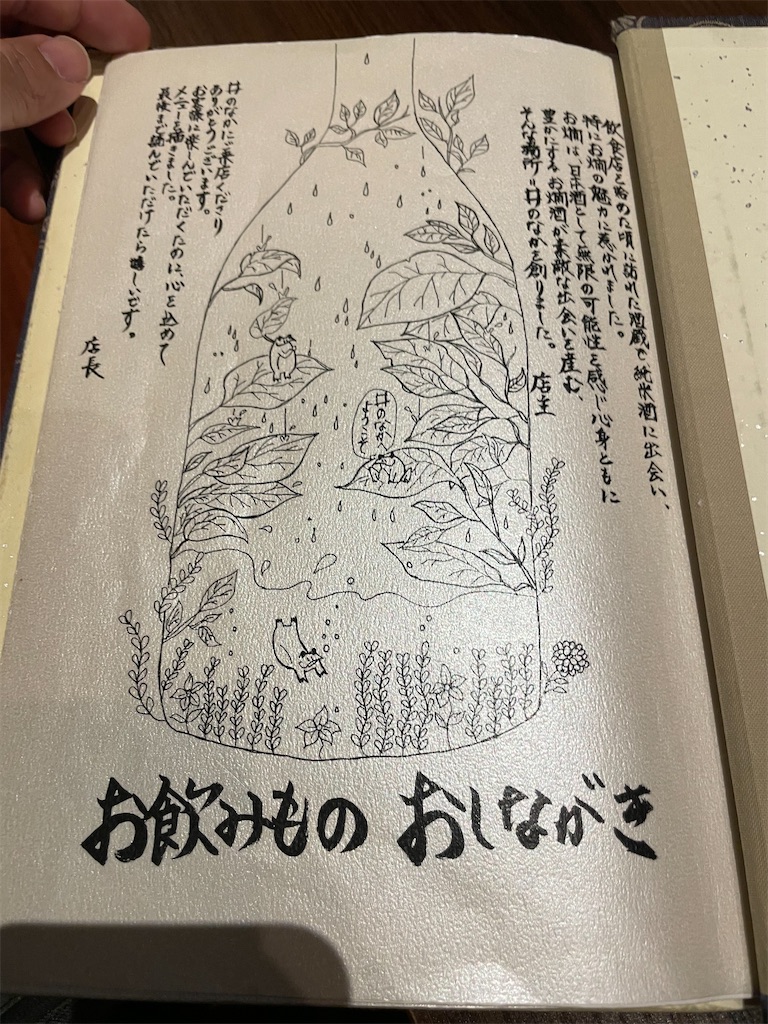 飲食店を始めた頃に訪れた酒蔵で純米酒に出会い、
特にお燗の魅力に惹かれました。
お燗は、日本酒として無限の可能性を感じ心身ともに
豊かにする お燗酒が素敵な出会いを産む、
そんな場所"井のなかを創りました。
店主
井のなかへ
ようこそ
井のなかにご来店くださり
ありがとうございます。
お客様に楽しんでいただくために、心を込めて
メニューを描きました。
最後まで読んでいただけたら嬉しいです。
店長
お飲みもの おしながき